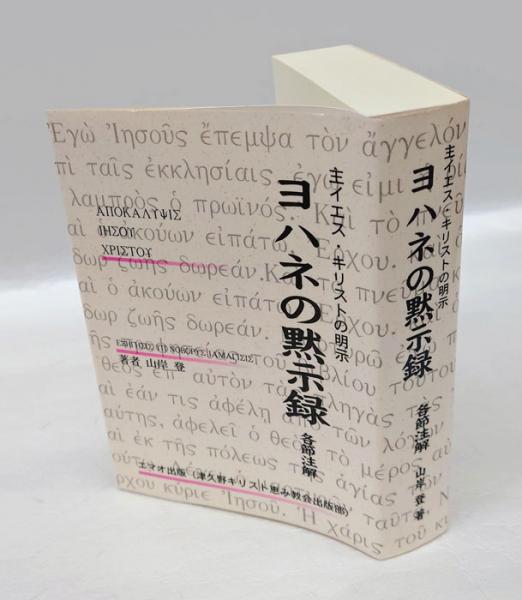 Ἐγὼ Ἰησοῦς ἔπεμψα τὸν ἄγγελόν
πὶ ταῖς ἐκκλησίαις ἐγώ εἰμι
λαμπρὸς ὁ πρωϊνός. Καὶ τὸ πνεῦμα
ΑΠΟΚΑΛΥΨΙΣ
ΙΗΣΟΥ
ΧΡΙΣΤΟΥ
ἀκούων εἰπάτω Ἔρχου.
δωρ ζωῆς δωρεάν.
αὶ ὁ ἀκούων εἰπάτω Ἔρχου.
δωρ ζωῆς δωρεάν.
τοῦ βιβλίου τούτου
θεὸς ἐπ' αὐτὸν τὰς πληγὰς τὰς
αὶ ἐάν τις ἀφέλῃ ἀπὸ τῶν λόγων
αύτης, ἀφελεῖ ὁ θεὸς τὸ μέρος αὐτοῦ
αὶ ἐκ τῆς πόλεως τῆς ἁγίας τῶν
ταῦτα. Ν
ρχου κύριε Ἰησοῦ. Ἡ χάρις
τοῦ κυ
主イエス・キリストの明示
ヨハネの黙示録
各節注解
著者 山岸 登
エマオ出版（津久野キリスト恵み教会出版部）
主イエス・キリストの明示
ヨハネの黙示録
各節注解
山岸 登 著